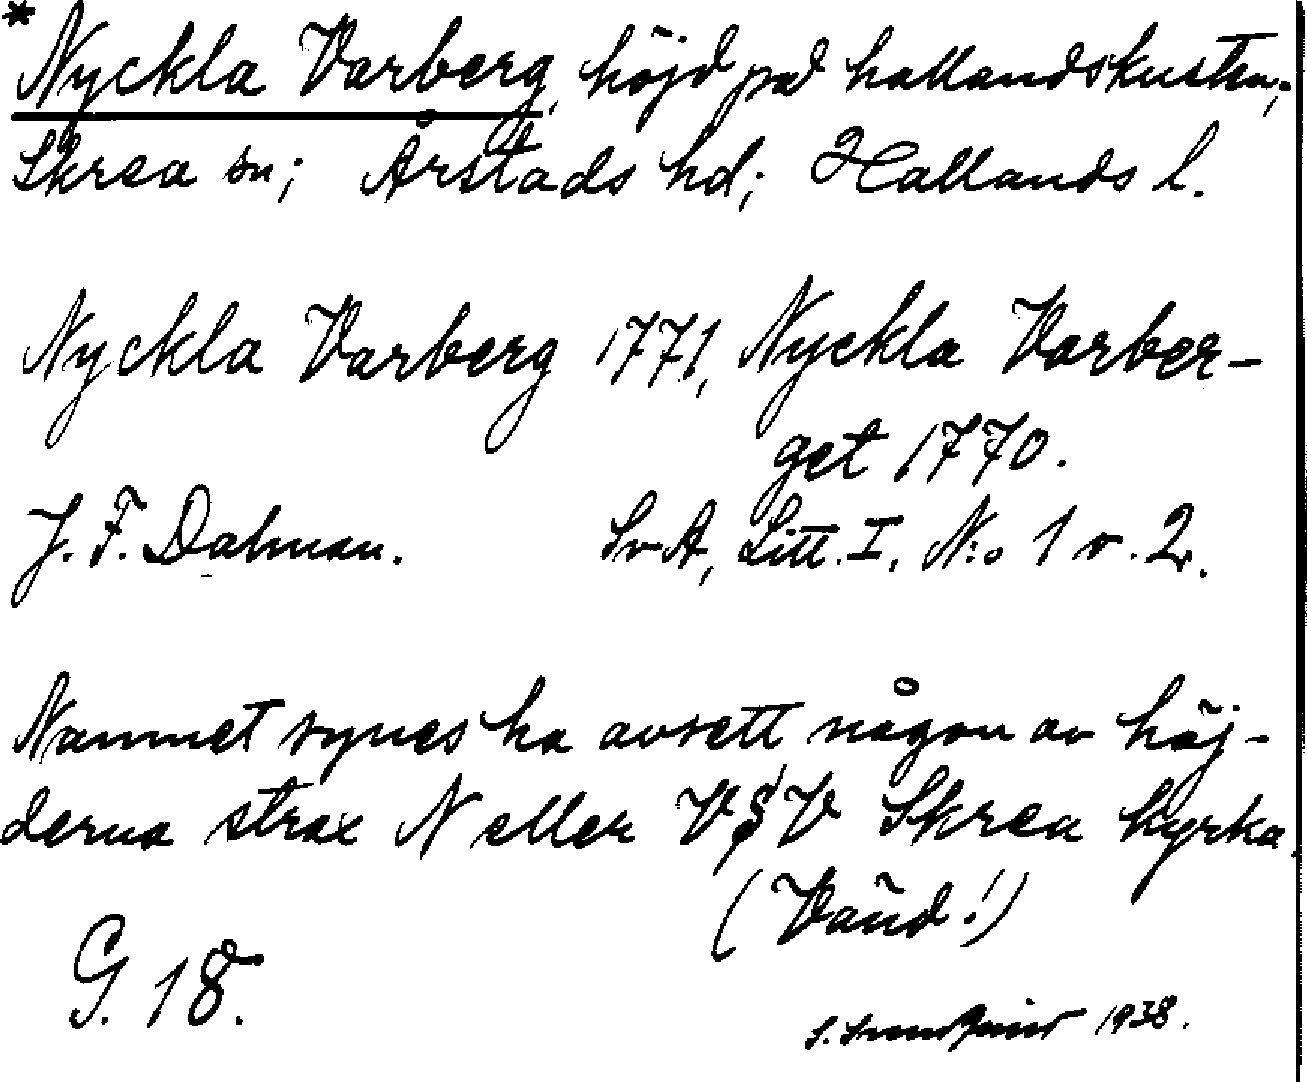 * Nyckla Varberg, höjd på hallandskusten;
Skrea sn; Årstads hd; Hallands l.
Nyckla Varberg 1771, Nyckla Varber-
get 1770.
J. F. Dalman. SvA, Litt. I, N:o 1 o. 2.
Namnet synes ha avsett någon av höj-
derna strax N eller VSV Skrea kyrka.
(Vänd!)
G. 18.
S. 1938.